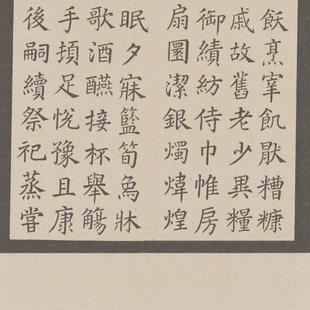 飫烹宰飢厭糟糠
戚故舊老少異糧
御績紡侍巾帷房
扇圓潔銀燭煒煌
眠夕寐籃筍象牀
歌酒醼接杯舉觴
手頓足悅豫且康
後嗣續祭祀蒸嘗